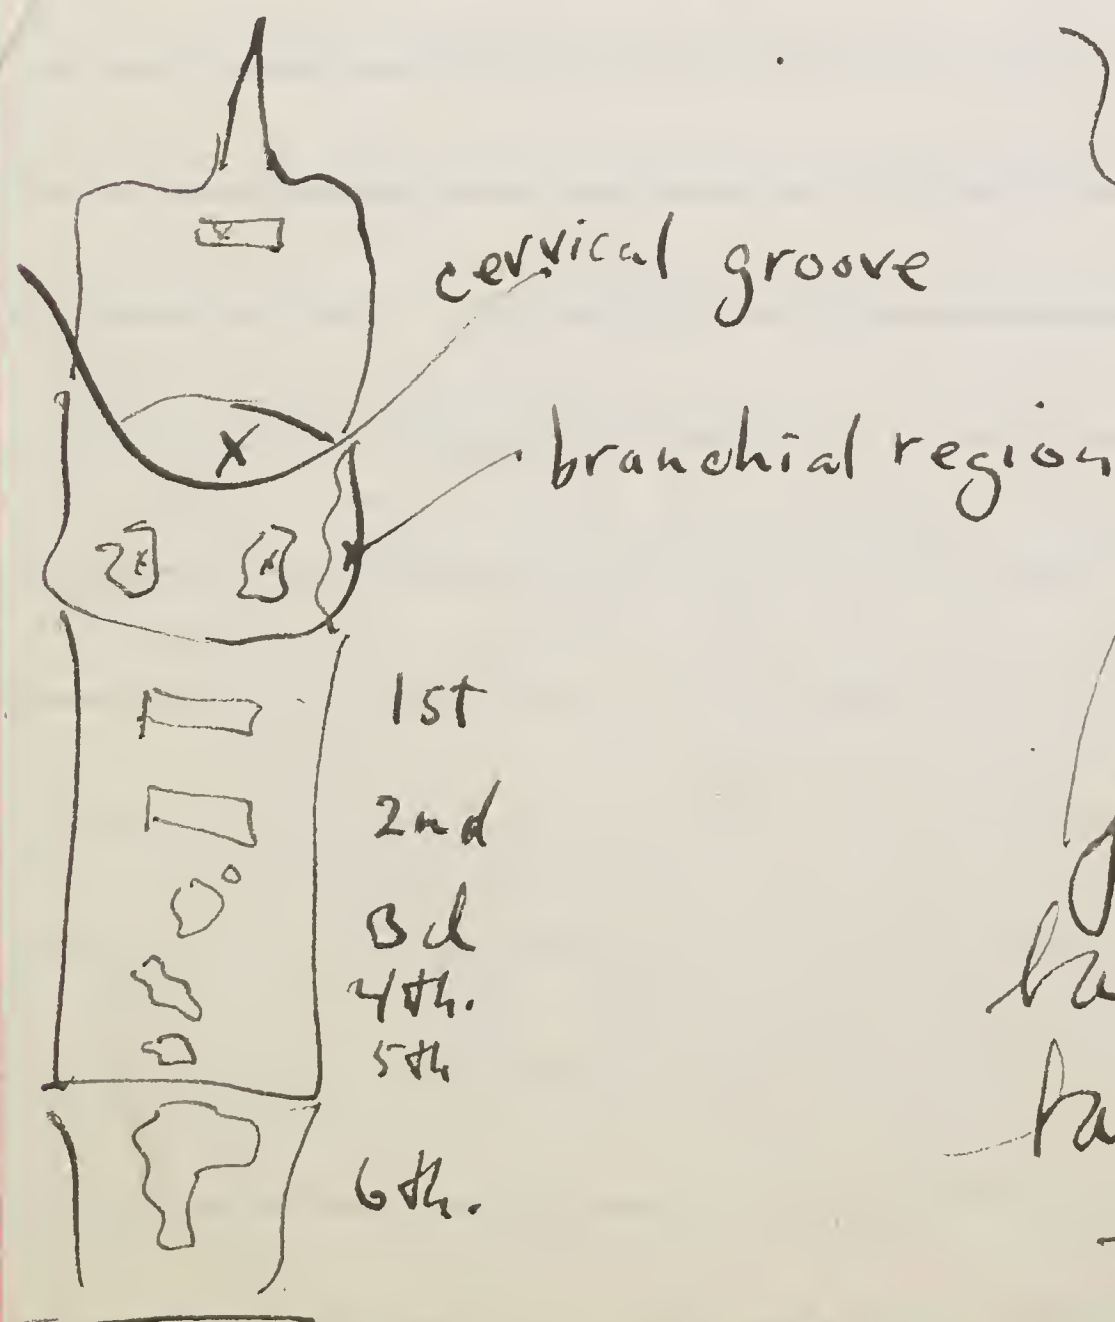 cervical groove
branchial region
1st
2nd
3d
4th.
5th
6th.